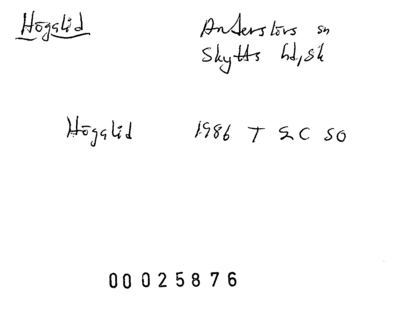 Högalid Anderslövs sn
Skytts hd, Sk
Högalid 1986 T 2C SO
00025876